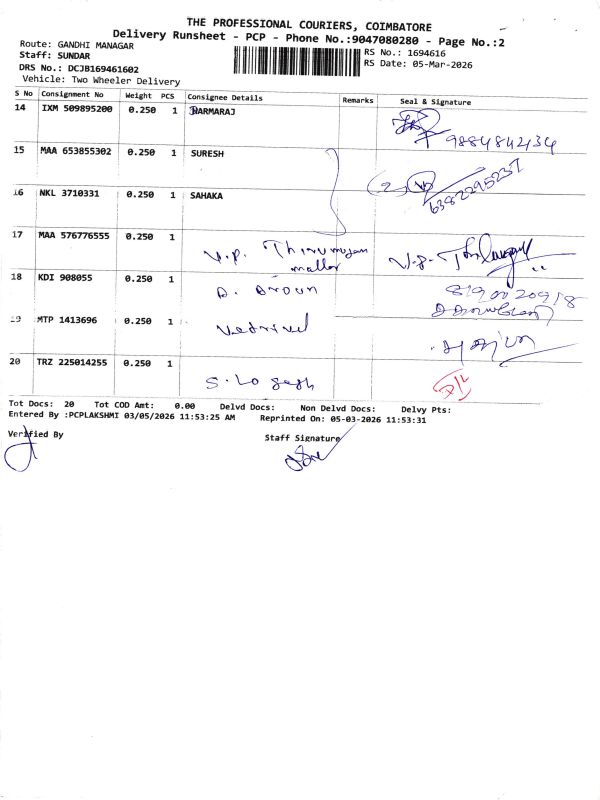 THE PROFESSIONAL COURIERS, COIMBATORE
Delivery Runsheet - PCP - Phone No.:9047080280 - Page No.:2
Route: GANDHI MANAGAR
Staff: SUNDAR
RS No.: 1694616
DRS No.: DCJB169461602
RS Date: 05-Mar-2026
Vehicle: Two Wheeler Delivery
S No Consignment No Weight PCS Consignee Details Remarks Seal & Signature
14 IXM 509895200 0.250 1 DARMARAJ
15 MAA 653855302 0.250 1 SURESH
6382295237
16 NKL 3710331 0.250 1 SAHAKA
17 MAA 576776555 0.250 1 V.P. Thirumugan
18 KDI 908055 0.250 1 D. Aroun
19 MTP 1413696 0.250 1 Vetrivel
20 TRZ 225014255 0.250 1 S. Logesh
Tot Docs: 20 Tot COD Amt: 0.00 Delvd Docs: Non Delvd Docs: Delvy Pts:
Entered By :PCPLAKSHMI 03/05/2026 11:53:25 AM Reprinted On: 05-03-2026 11:53:31
Verified By
Staff Signature